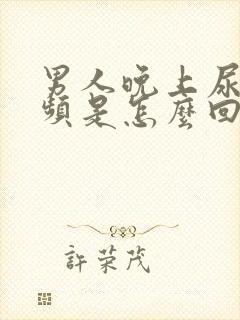 男人晚上尿
頻是怎麼回
許荣茂